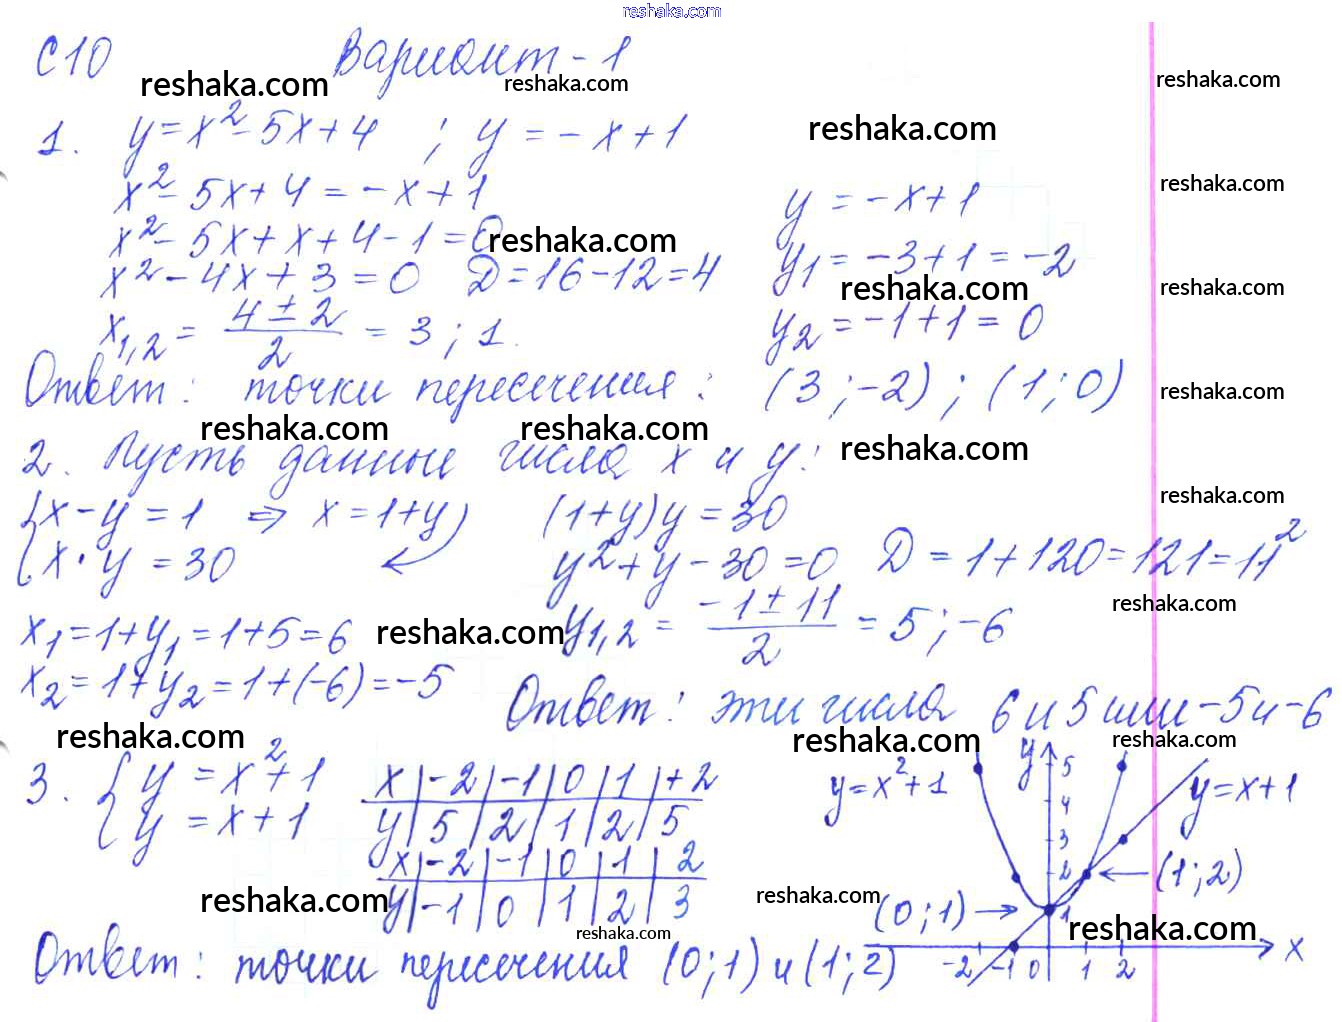 reshaka.com
С10 Вариант-1
reshaka.com reshaka.com reshaka.com
1. y=x²-5x+4 ; y=-x+1
reshaka.com
x²-5x+4=-x+1
reshaka.com
y=-x+1
x²-5x+x+4-1=0
reshaka.com
y₁=-3+1=-2
x²-4x+3=0 D=16-12=4
reshaka.com reshaka.com
x₁,₂ = (4±2)/2 = 3; 1.
y₂=-1+1=0
Ответ: точки пересечения: (3;-2); (1;0)
reshaka.com
reshaka.com reshaka.com reshaka.com
2. Пусть данные числа x и y:
reshaka.com
{x-y=1 ⇒ x=1+y (1+y)y=30
{x·y=30 y²+y-30=0 D=1+120=121=11²
reshaka.com
x₁=1+y₁=1+5=6
reshaka.com
y₁,₂ = (-1±11)/2 = 5; -6
x₂=1+y₂=1+(-6)=-5
Ответ: эти числа 6 и 5 или -5 и -6
reshaka.com reshaka.com reshaka.com
3. {y=x²+1
{y=x+1
x|-2|-1|0|1|+2
y|5|2|1|2|5
x|-2|-1|0|1|2
y|-1|0|1|2|3
y=x²+1
y
5
4
3
2
1
y=x+1
(1;2)
(0;1)
-2 -1 0 1 2 x
reshaka.com reshaka.com reshaka.com
reshaka.com
Ответ: точки пересечения (0;1) и (1;2)